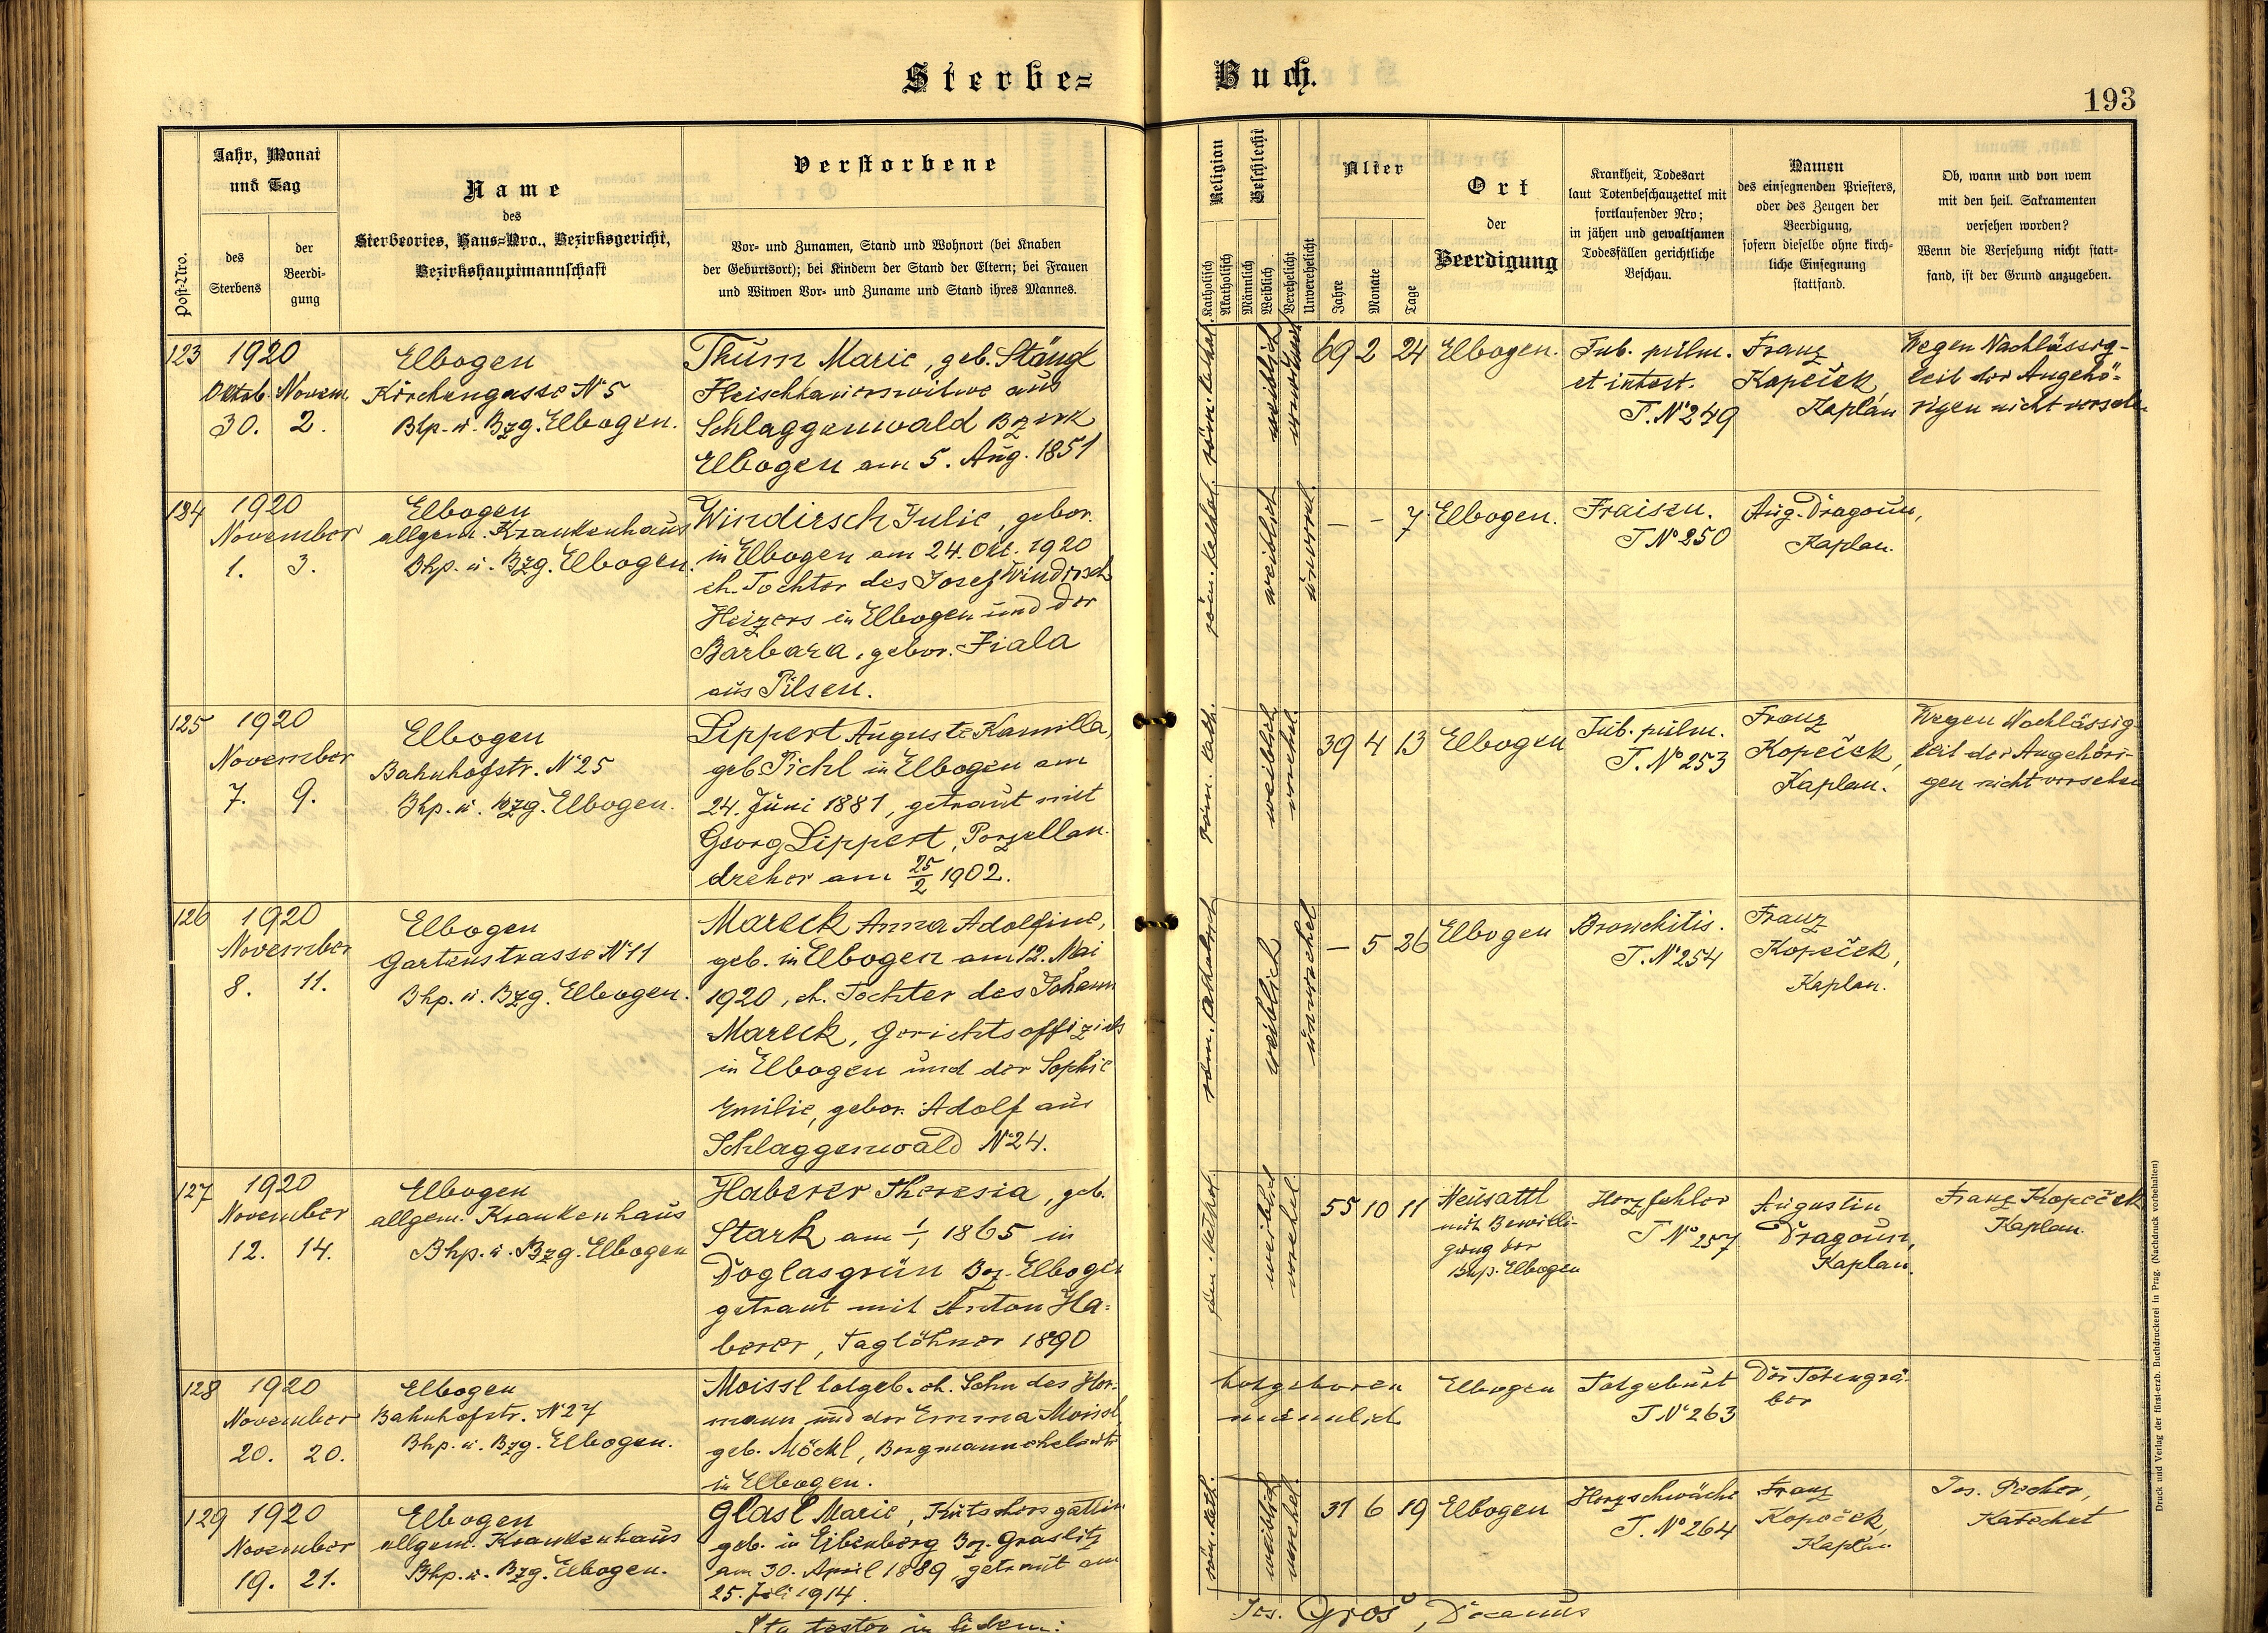 Sterbe=
Buch.
193
Post-Nro.
Jahr, Monat
und Tag
des
Sterbens
der
Beerdi-
gung
Name
des
Sterbeortes, Haus=Nro., Bezirksgericht,
Bezirkshauptmannschaft
Verstorbene
Vor- und Zunamen, Stand und Wohnort (bei Knaben
der Geburtsort); bei Kindern der Stand der Eltern; bei Frauen
und Witwen Vor- und Zuname und Stand ihres Mannes.
Religion
Katholisch
Akatholisch
Geschlecht
Männlich
Weiblich
Verehelicht
Unverehelicht
Alter
Jahre
Monate
Tage
Ort
der
Beerdigung
Krankheit, Todesart
laut Totenbeschauzettel mit
fortlaufender Nro;
in jähen und gewaltsamen
Todesfällen gerichtliche
Beschau.
Namen
des einsegnenden Priesters,
oder des Zeugen der
Beerdigung,
sofern dieselbe ohne kirch-
liche Einsegnung
stattfand.
Ob, wann und von wem
mit den heil. Sakramenten
versehen worden?
Wenn die Versehung nicht statt-
fand, ist der Grund anzugeben.
123
1920
Oktob. Novem.
30. 2.
Elbogen
Kirchengasse No 5
Bhp. u. Bzg. Elbogen.
Thum Marie, geb. Stängl
Fleischhauerswitwe aus
Schlaggenwald Bzirk
Elbogen am 5. Aug. 1851
röm. kathol.
weiblich
69 2 24
Elbogen.
Tub. pulm.
et intest.
T. No 249
Franz
Kopeček
Kaplan
Wegen Nachlässig-
keit der Angehö-
rigen nicht versehen
124
1920
November
1. 3.
Elbogen
allgem. Krankenhaus
Bhp. u. Bzg. Elbogen.
Windirsch Julie, gebor.
in Elbogen am 24. Okt. 1920
eh. Tochter des Josef Windirsch
Heizers in Elbogen und der
Barbara, gebor. Fiala
aus Pilsen.
röm. kathol.
weiblich
unvereh.
– – 7
Elbogen.
Fraisen.
T No 250
Aug. Dragoun,
Kaplan.
125
1920
November
7. 9.
Elbogen
Bahnhofstr. No 25
Bhp. u. Bzg. Elbogen.
Lippert Auguste Kamilla,
geb. Pichl in Elbogen am
24. Juni 1881, getraut mit
Georg Lippert, Porzellan-
dreher am 25/2 1902.
röm. kath.
weiblich
verehel.
39 4 13
Elbogen
Tub. pulm.
T. No 253
Franz
Kopeček,
Kaplan.
Wegen Nachlässig-
keit der Angehöri-
gen nicht versehen
126
1920
November
8. 11.
Elbogen
Gartenstrasse No 11
Bhp. u. Bzg. Elbogen.
Mareck Anna Adolfine,
geb. in Elbogen am 12. Mai
1920, eh. Tochter des Johann
Mareck, Gerichtsoffizials
in Elbogen und der Sophie
Emilie, gebor. Adolf aus
Schlaggenwald No 24.
weiblich
unverehel
– 5 26
Elbogen
Bronchitis.
T. No 254
Franz
Kopeček,
Kaplan.
127
1920
November
12. 14.
Elbogen
allgem. Krankenhaus
Bhp. u. Bzg. Elbogen
Haberer Theresia, geb.
Stark am 1/1 1865 in
Doglasgrün Bez. Elbogen
getraut mit Anton Ha=
berer, Taglöhner 1890
röm. kathol.
weiblich
verehel.
55 10 11
Neusattl
mit Bewilli-
gung der
Bhp. Elbogen
Herzfehler
T No 257
Augustin
Dragoun,
Kaplan.
Franz Kopeček
Kaplan.
128
1920
November
20. 20.
Elbogen
Bahnhofstr. No 27
Bhp. u. Bzg. Elbogen.
Moissl totgeb. eh. Sohn des Her-
mann und der Emma Moissl,
geb. Möckl, Bergmannseheleute
in Elbogen.
totgeboren
männlich
Elbogen
Totgeburt
T No 263
Der Totengrä-
ber
129
1920
November
19. 21.
Elbogen
allgem. Krankenhaus
Bhp. u. Bzg. Elbogen.
Glasl Marie, Kutschersgattin
geb. in Eibenberg Bez. Graslitz
am 30. April 1889, getraut am
25. Juli 1914.
röm. kath.
weiblich
verehel.
31 6 19
Elbogen
Herzschwäche
T. No 264
Franz
Kopeček,
Kaplan.
Jos. Pecher,
Katechet
Ita testor in fidem:
Jos. Groš, Decanus
Druck und Verlag der fürst-erzb. Buchdruckerei in Prag. (Nachdruck vorbehalten)